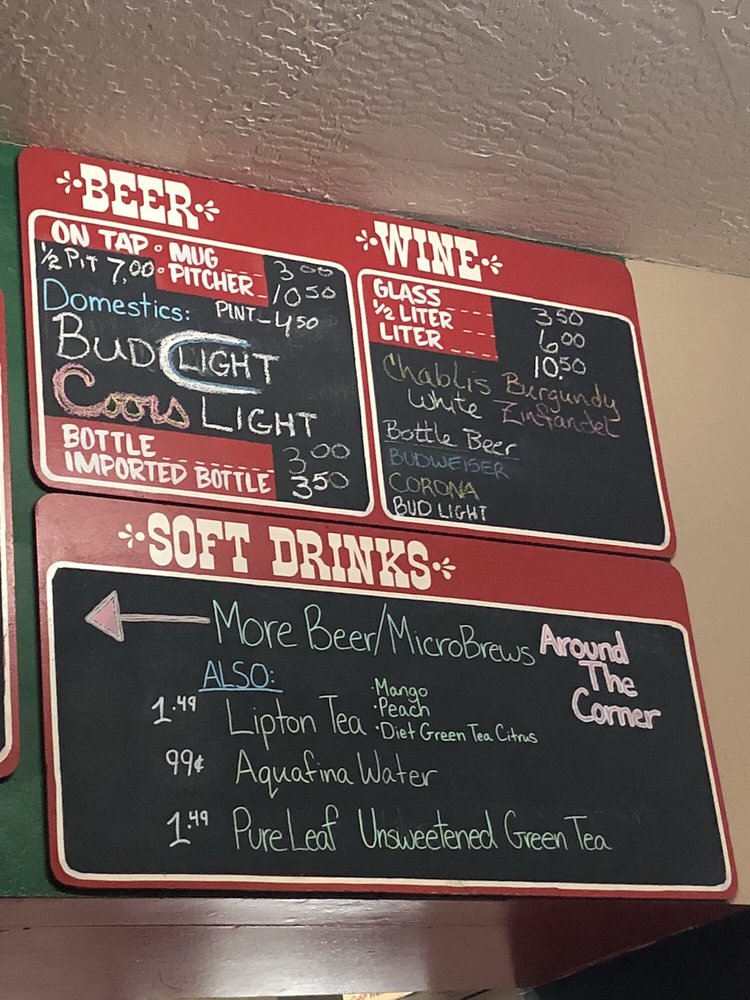 BEER
ON TAP • MUG 3 00
½ PIT 7.00 • PITCHER 10 50
Domestics: PINT - 4 50
BUD LIGHT
Coors LIGHT
BOTTLE 3 00
IMPORTED BOTTLE 3 50
WINE
GLASS 3 50
½ LITER 6 00
LITER 10.50
Chablis Burgundy
White Zinfandel
Bottle Beer
BUDWEISER
CORONA
BUD LIGHT
SOFT DRINKS
More Beer/MicroBrews Around
The
Corner
ALSO:
1.49 Lipton Tea
• Mango
• Peach
• Diet Green Tea Citrus
99¢ Aquafina Water
1.49 PureLeaf Unsweetened Green Tea